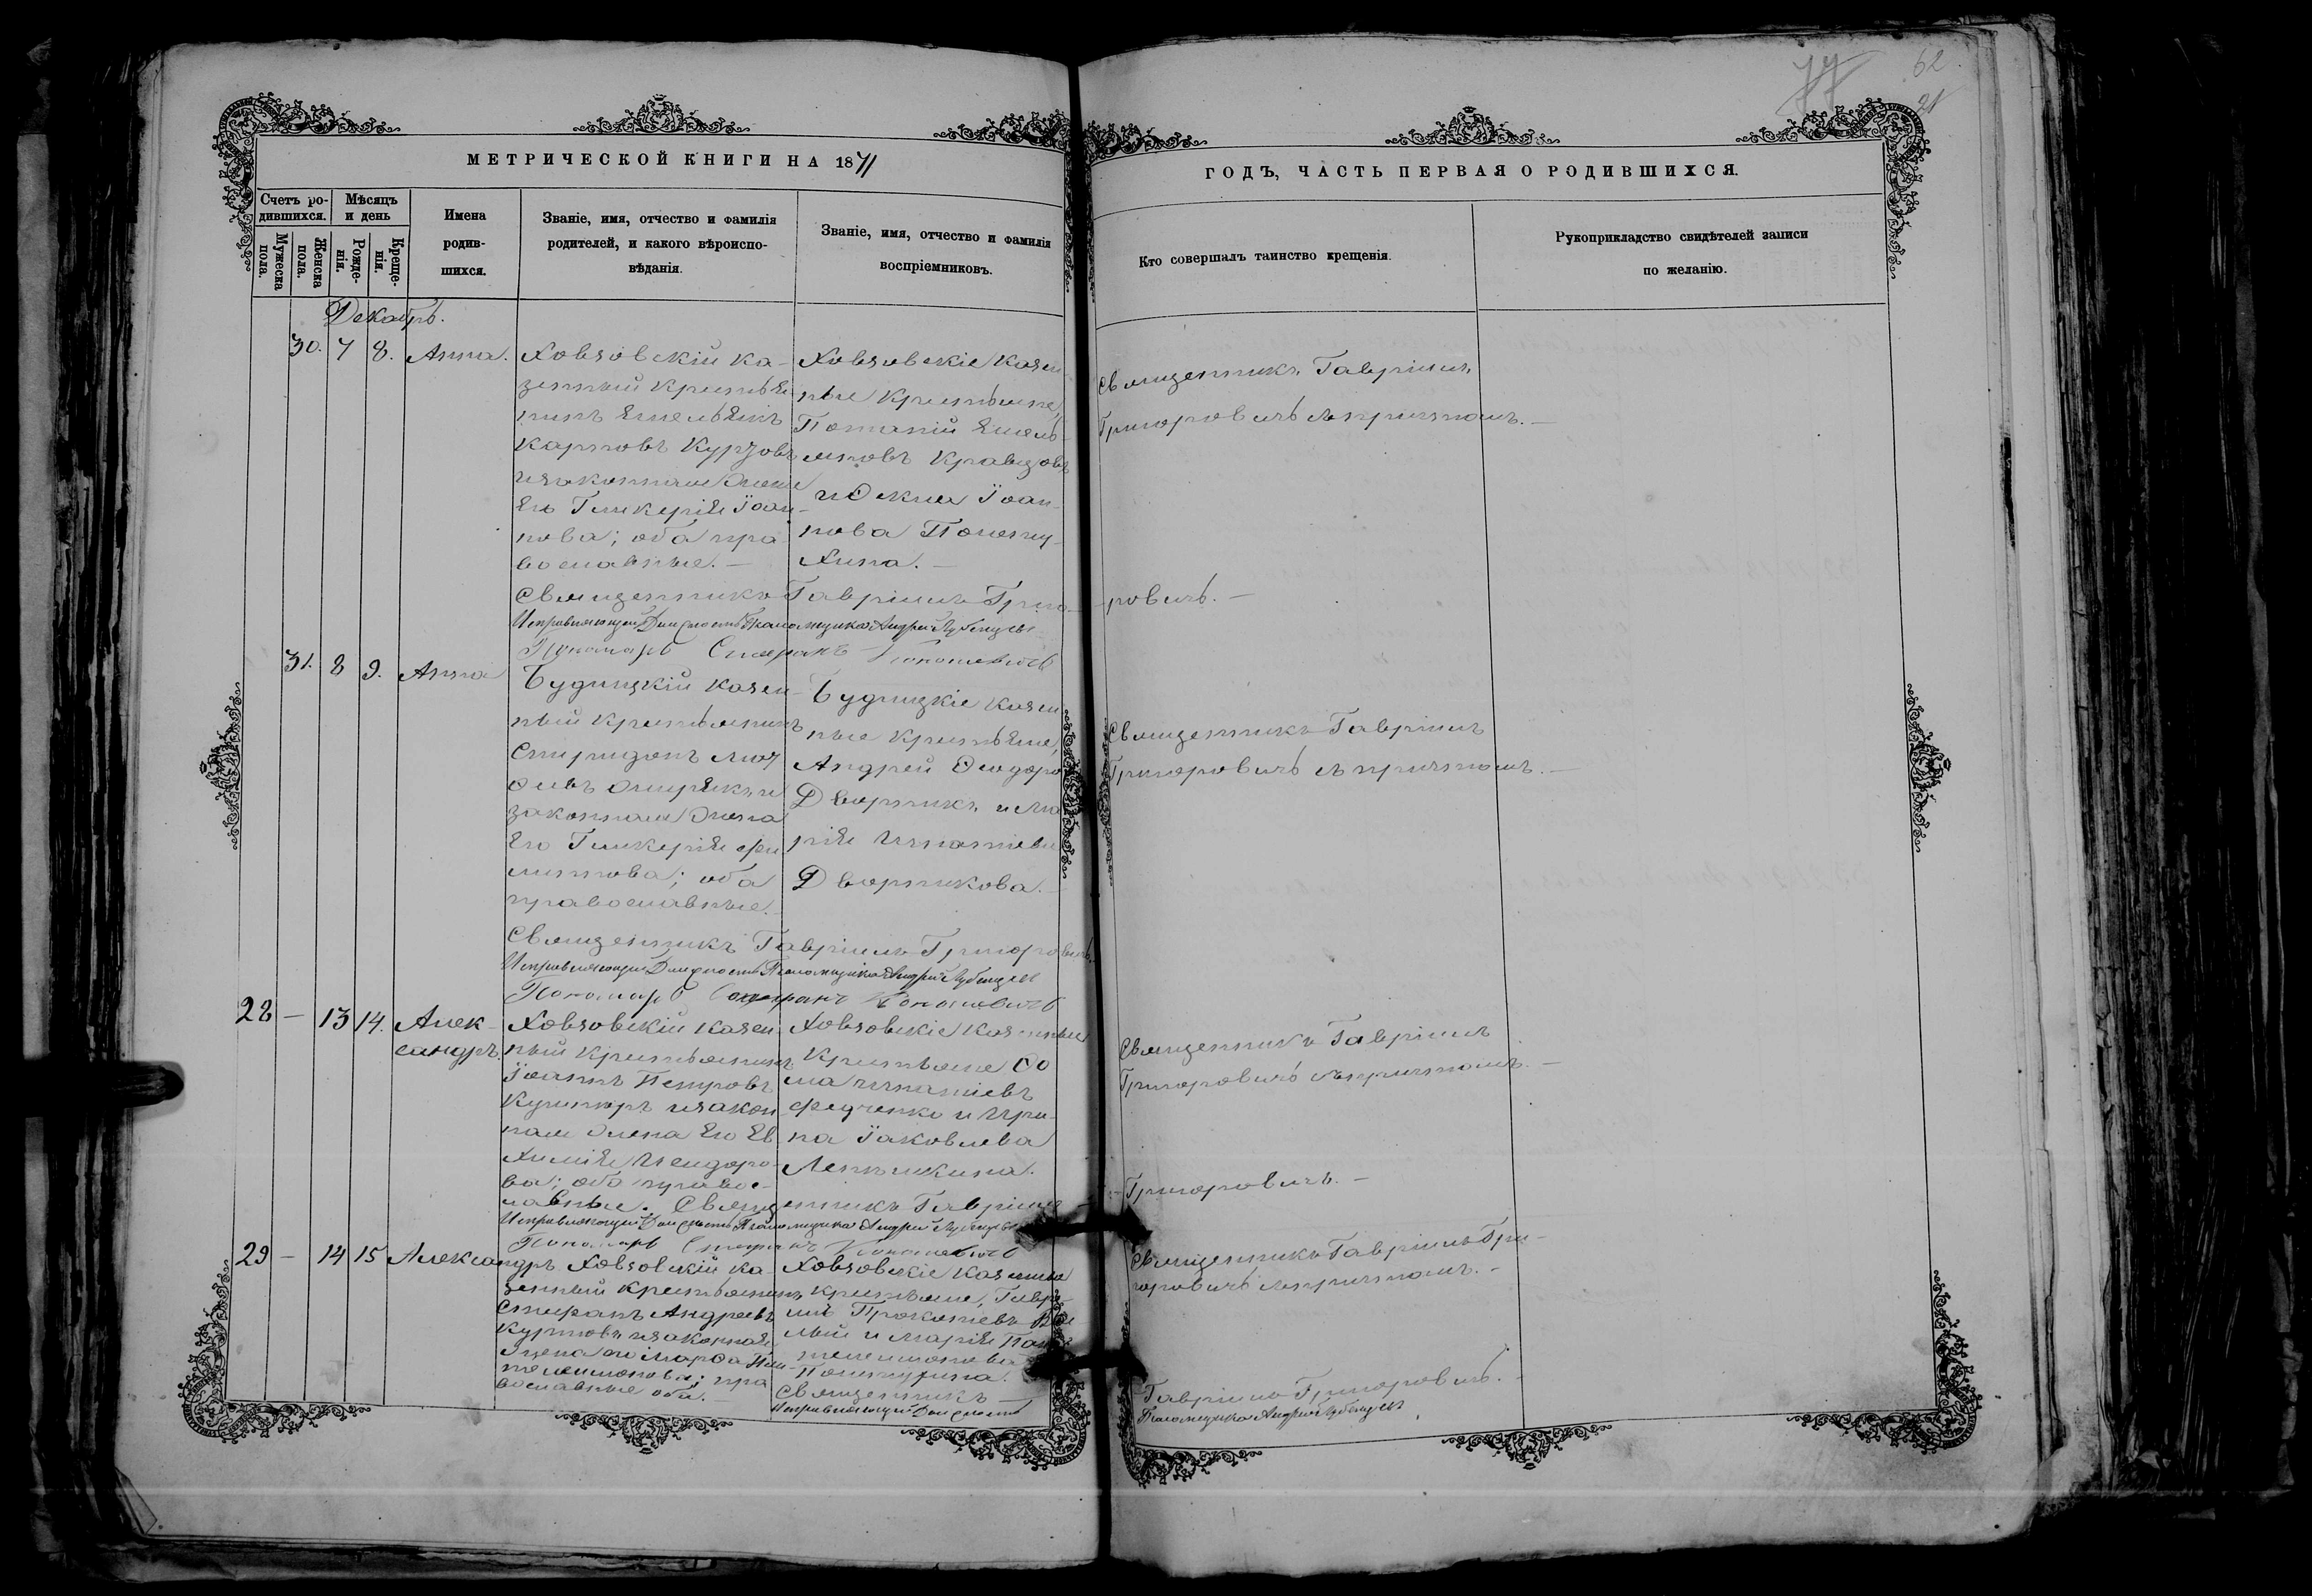 77
62
21
МЕТРИЧЕСКОЙ КНИГИ НА 1871
ГОДЪ, ЧАСТЬ ПЕРВАЯ О РОДИВШИХСЯ.
Счетъ ро-
дившихся.
Мужеска
пола.
Женска
пола.
Мѣсяцъ
и день
Рожде-
нія.
Креще-
нія.
Имена
родив-
шихся.
Званіе, имя, отчество и фамилія
родителей, и какого вѣроиспо-
вѣданія.
Званіе, имя, отчество и фамилія
воспріемниковъ.
Кто совершалъ таинство крещенія.
Рукоприкладство свидѣтелей записи
по желанію.
Декабрь.
30. 7 8. Анна.
Ховзовскій ка-
зенный крестья
нинъ Емельянъ
Карповъ
и законная жена
его Гликерія Іоан-
нова; оба пра
вославные. —
Ховзовскіе казен
ные крестьяне,
Потапій Емель-
яновъ Кравцовъ
и Іоан-
нова
хина. —
Священникъ Гавріилъ
Григоровичъ съ причтомъ. —
Священникъ Гавріилъ Григо-
ровичъ. —
Исправляющій Должность Псаломщика Андрей
Пономарь Стефанъ
31. 8 9. Анна
Будищскій казен-
ный крестьянинъ
Спиридонъ
и
законная жена
его Гликерія Фи
липпова; оба
православные.
Будищскіе казен
ные крестьяне,
Андрей Ѳеодоро
Дворникъ и Ма
рія Игнатіева
Дворникова. —
Священникъ Гавріилъ
Григоровичъ съ причтомъ. —
Священникъ Гавріилъ Григоровичъ.
Исправляющій Должность Псаломщика Андрей
Пономарь Стефанъ
28 — 13 14. Алек-
сандръ.
Ховзовскій казен
ный крестьянинъ
Іоаннъ Петровъ
и закон
ная жена его Ев
фимія
ва; оба правос-
лавные.
Ховзовскіе казенные
крестьяне Ѳо
ма Игнатіевъ
Федченко и Ири-
на Іаковлева
Священникъ Гавріилъ
Григоровичъ съ причтомъ. —
Священникъ Гавріилъ —
— Григоровичъ. —
Исправляющій Должность Псаломщика Андрей
Пономарь Стефанъ
29 — 14 15 Александръ
Ховзовскій ка-
зенный крестьянинъ
Стефанъ Андреевъ
и законная
жена его Марѳа Пан-
телеимонова; пра
вославные оба.
Ховзовскіе казенные
крестьяне, Гаврі
илъ Прокопіевъ
и Марія Пан
телеимонова
Священникъ Гавріилъ Гри-
горовичъ съ причтомъ. —
Священникъ —
Гавріилъ Григоровичъ. —
Исправляющій Должность
Псаломщика Андрей